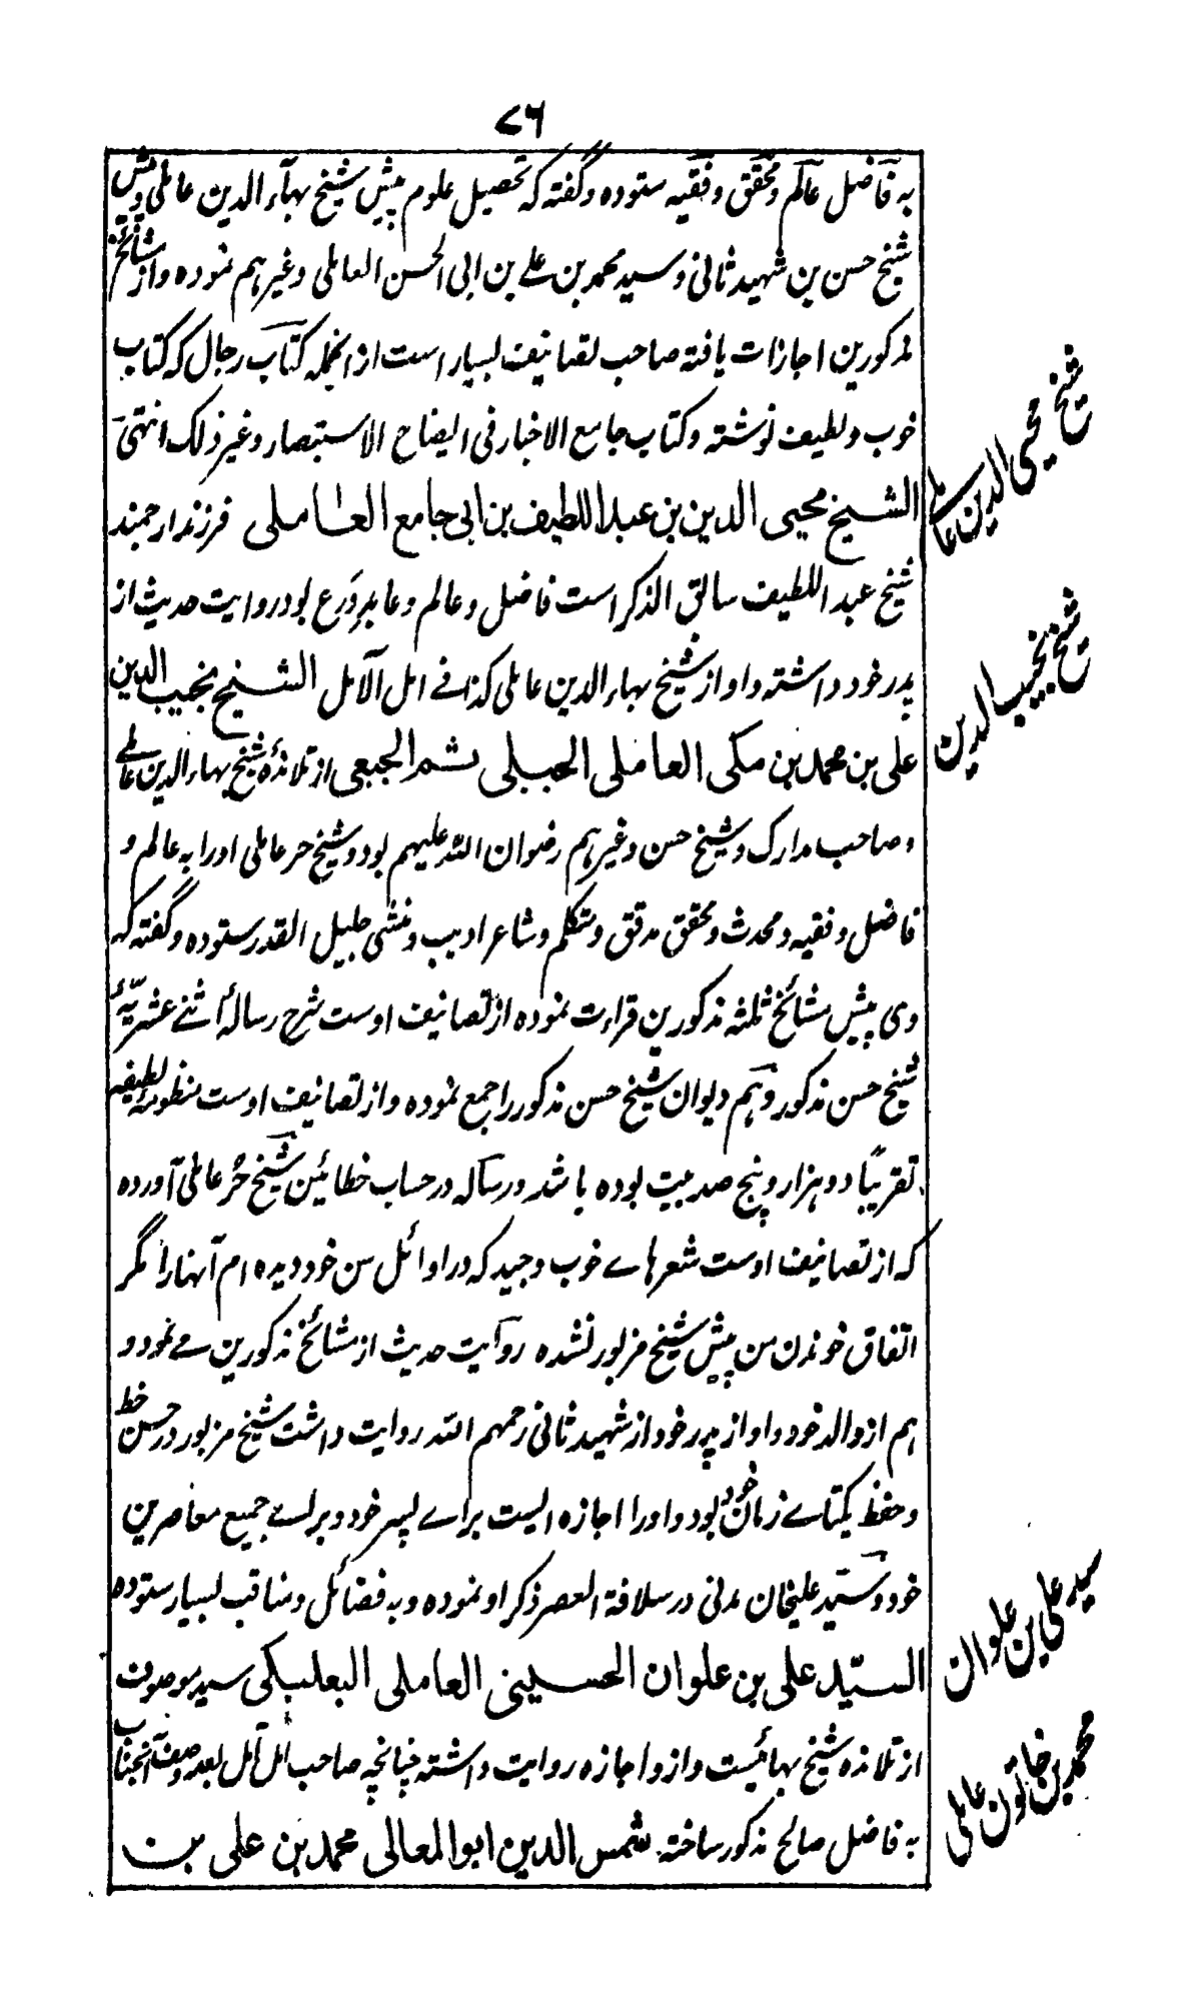 ۷۶
به فاضل عالم و محقق و فقیه ستوده و گفته که تحصیل علوم پیش شیخ بهآء الدین عاملی و پیش
شیخ حسن بن شهید ثانی و سید محمد بن علے بن ابی الحسن العاملی و غیر هم نموده و از مشائخ
مذکورین اجازات یافته صاحب تصانیف بسیار است از انجمله کتاب رجال که کتاب
خوب و لطیف نوشته و کتاب جامع الاخبار فی ایضاح الاستبصار و غیر ذلک انتهی
الشیخ محیی الدین بن عبد اللطیف بن ابی جامع العاملی فرزند ارجمند
شیخ عبد اللطیف سابق الذکر است فاضل و عالم و عابد و وَرَع بود روایت حدیث از
پدر خود داشته و او از شیخ بهاء الدین عاملی کذا فے امل الآمل الشیخ نجیب الدین
علی بن محمد بن مکی العاملی الجبلی ثم الجبعی از تلامذهٔ شیخ بهاء الدین عاملے
و صاحب مدارک و شیخ حسن و غیر هم رضوان الله علیهم بود و شیخ حر عاملی او را به عالم و
فاضل و فقیه و محدث و محقق مدقق و متکلم و شاعر ادیب و منشی جلیل القدر ستوده و گفته که
وی پیش مشائخ ثلثه مذکورین قراءت نموده از تصانیف اوست شرح رسالهٔ اثنے عشریهٔ
شیخ حسن مذکور و هم دیوان شیخ حسن مذکور را جمع نموده و از تصانیف اوست منظومهٔ لطیفه
تقریبًا دو هزار و پنج صد بیت بوده باشد و رساله در حساب خطائین شیخ حُر عاملی آورده
که از تصانیف اوست شعرهاے خوب و جید که در اوائل سن خود دیده ام آنها را مگر
اتفاق خواندن من پیش شیخ مزبور نشده روایت حدیث از مشائخ مذکورین مے نمود و
هم از والد خود و او از پدر خود از شهید ثانی رحمهم الله روایت داشت شیخ مزبور در حسن خط
و حفظ یکتاے زمان خود بود و او را اجازه ایست براے پسر خود و براے جمیع معاصرین
خود و سیّد علیخان مدنی در سلافة العصر ذکر او نموده و به فضائل و مناقب بسیار ستوده
السیّد علی بن علوان الحسینی العاملی البعلبکی سید موصوف
از تلامذه شیخ بهائیست و از و اجازه روایت داشته چنانچه صاحب امل آمل بعد وصف آنجناب
به فاضل صالح مذکور ساخته شمس الدین ابو المعالی محمد بن علی بن
شیخ محیی الدین عاملے
شیخ نجیب الدین
سید علی بن علوان
محمد بن خاتون عاملی